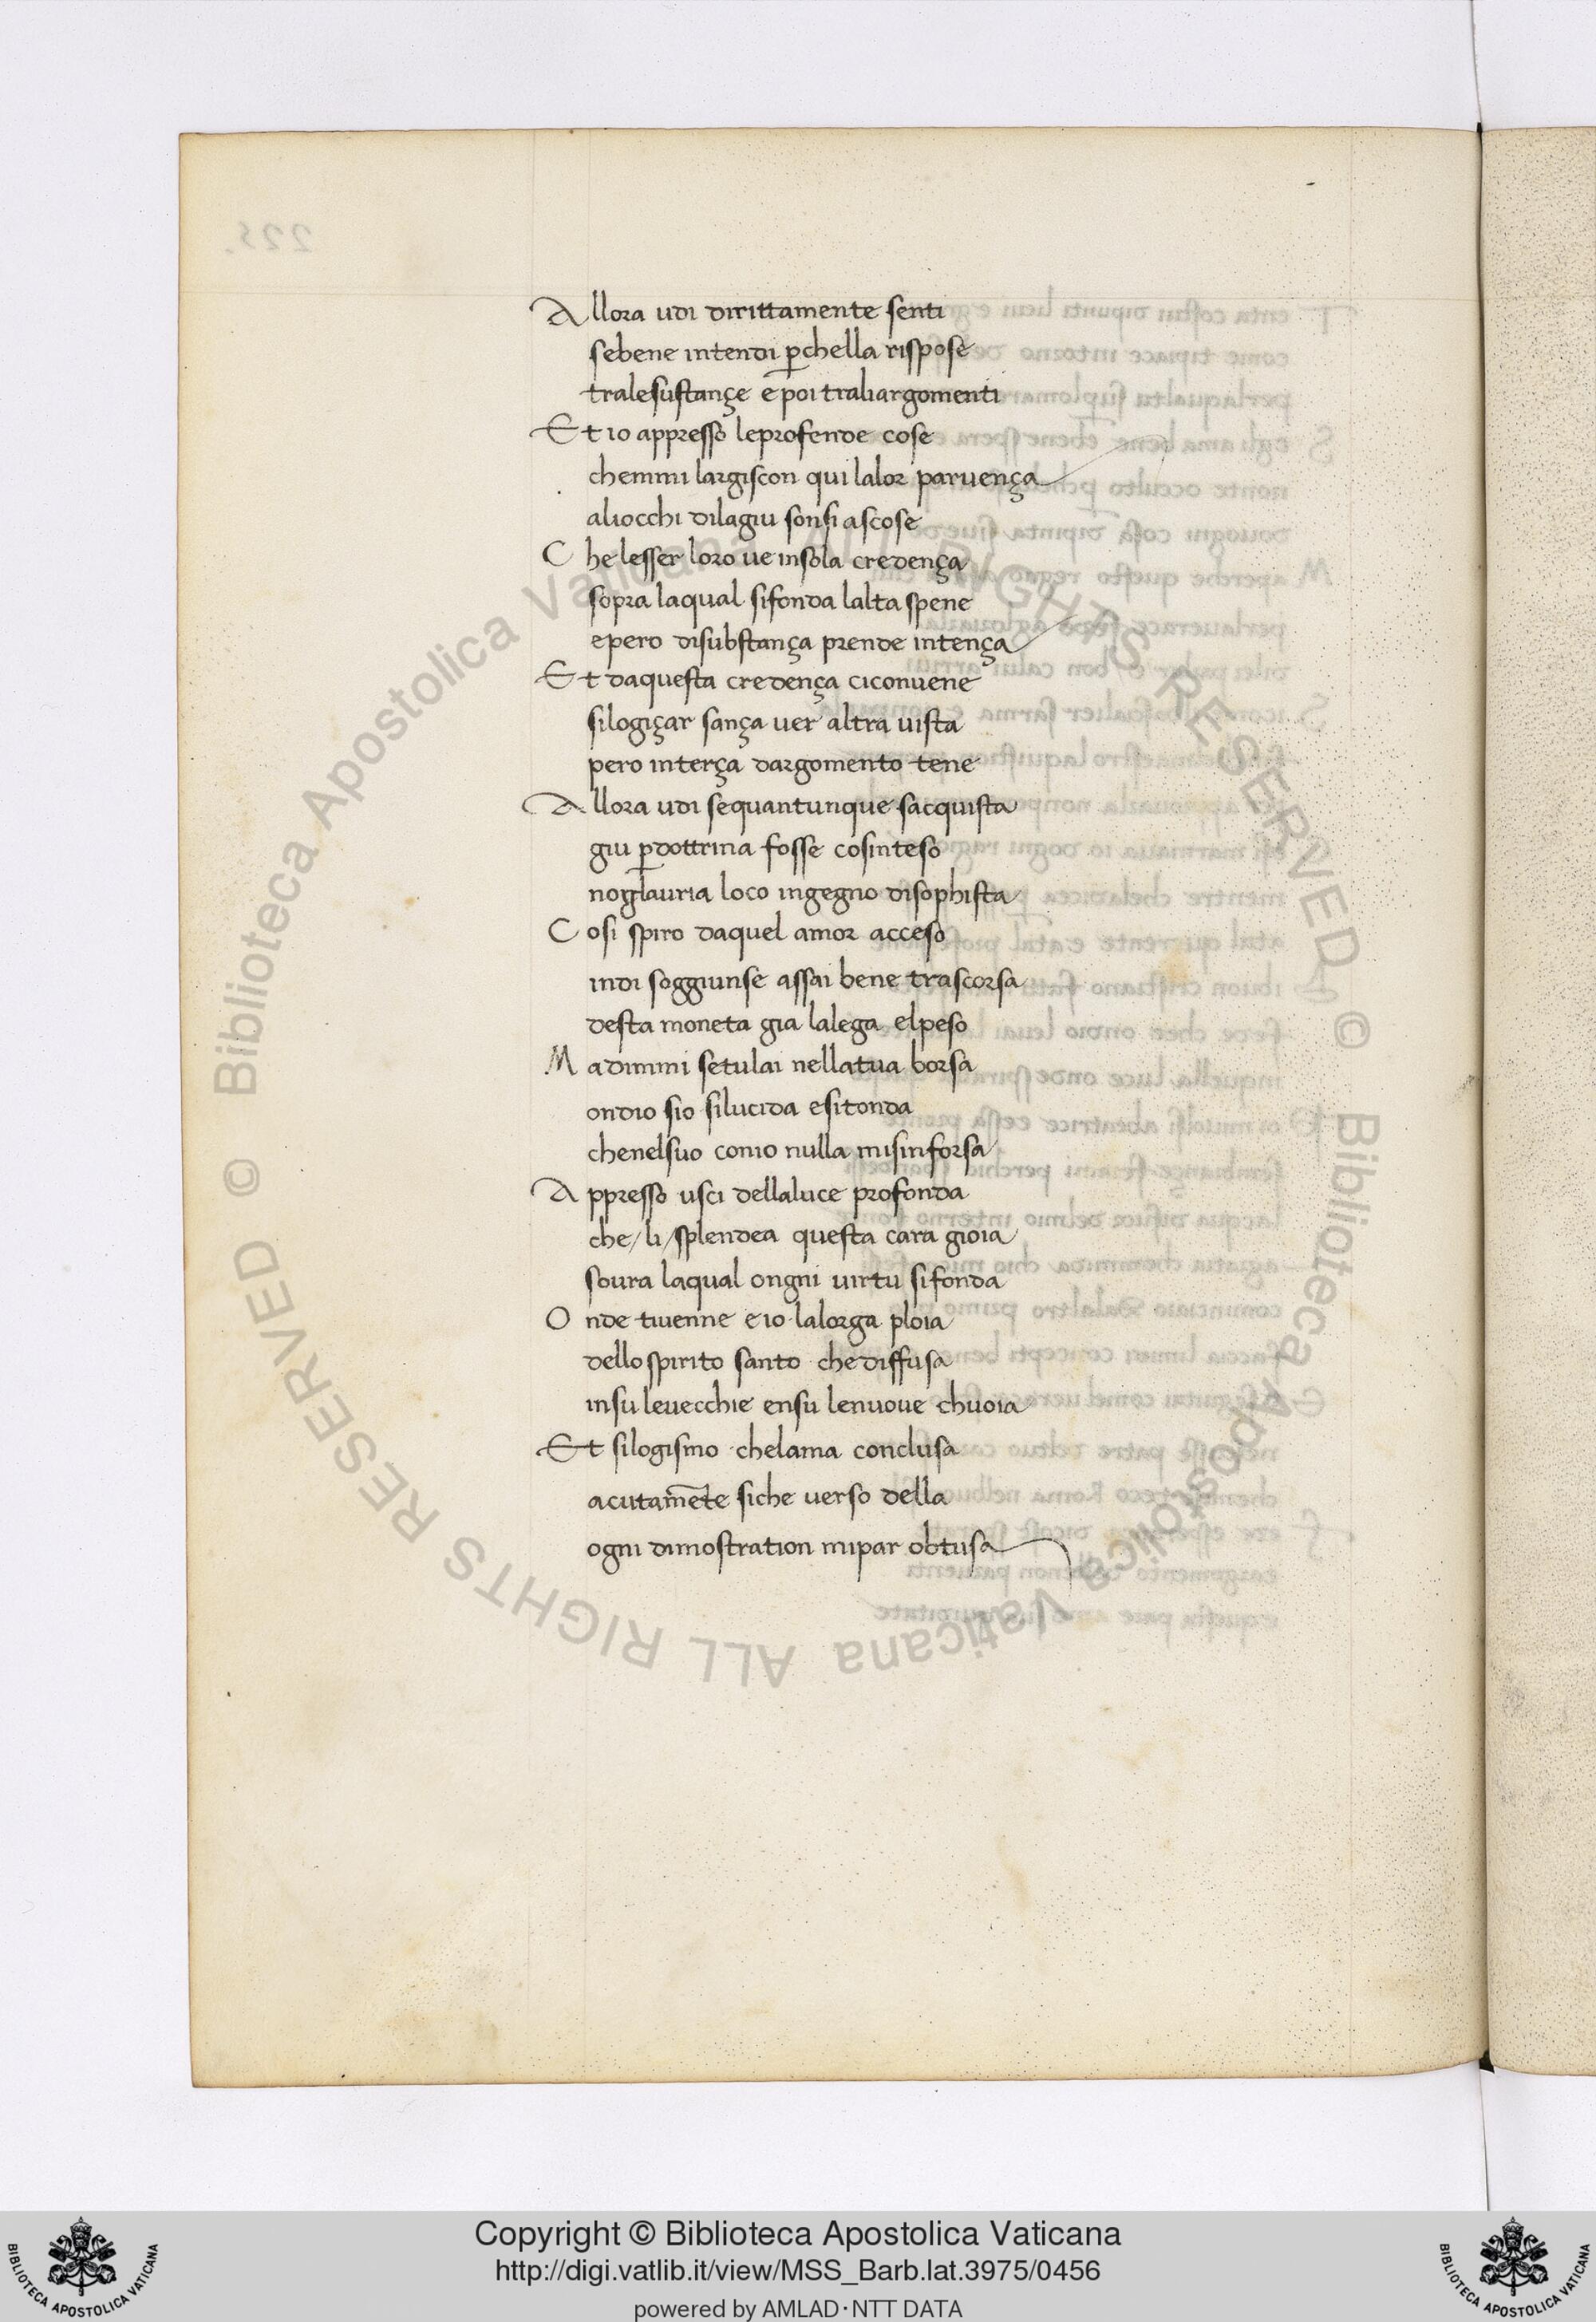 Allora udi dirittamente senti
sebene intendi ꝑchella rispose
tralesustançe e poi traliargomenti
Et io appresso leprofende cose
chemmi largiscon qui lalor paruença
aliocchi dilagiu sonsi ascose
Che lesser loro ue insola credença
sopra laqual sifonda lalta spene
epero disubstança prende intença
Et daquesta credença ciconuene
silogiçar sança uer altra uista
pero interça dargomento tene
Allora udi sequantunque sacquista
giu ꝑdottrina fosse cosinteso
nonglauria loco ingegno disophista
Cosi spiro daquel amor acceso
indi soggiunse assai bene trascorsa
desta moneta gia lalega elpeso
Madimmi setulai nellatua borsa
ondio sio silucida esitonda
chenelsuo conio nulla misinforsa
Appresso usci dellaluce profonda
che/li/splendea questa cara gioia
soura laqual ongni uirtu sifonda
Onde tiuenne e io lalorga ploia
dello spirito santo che diffusa
insu leuecchie ensu lenuoue chuoia
Et silogismo chelama conclusa
acutam̄ete siche uerso della
ogni dimostration mipar obtusa
Copyright © Biblioteca Apostolica Vaticana
http://digi.vatlib.it/view/MSS_Barb.lat.3975/0456
powered by AMLAD·NTT DATA